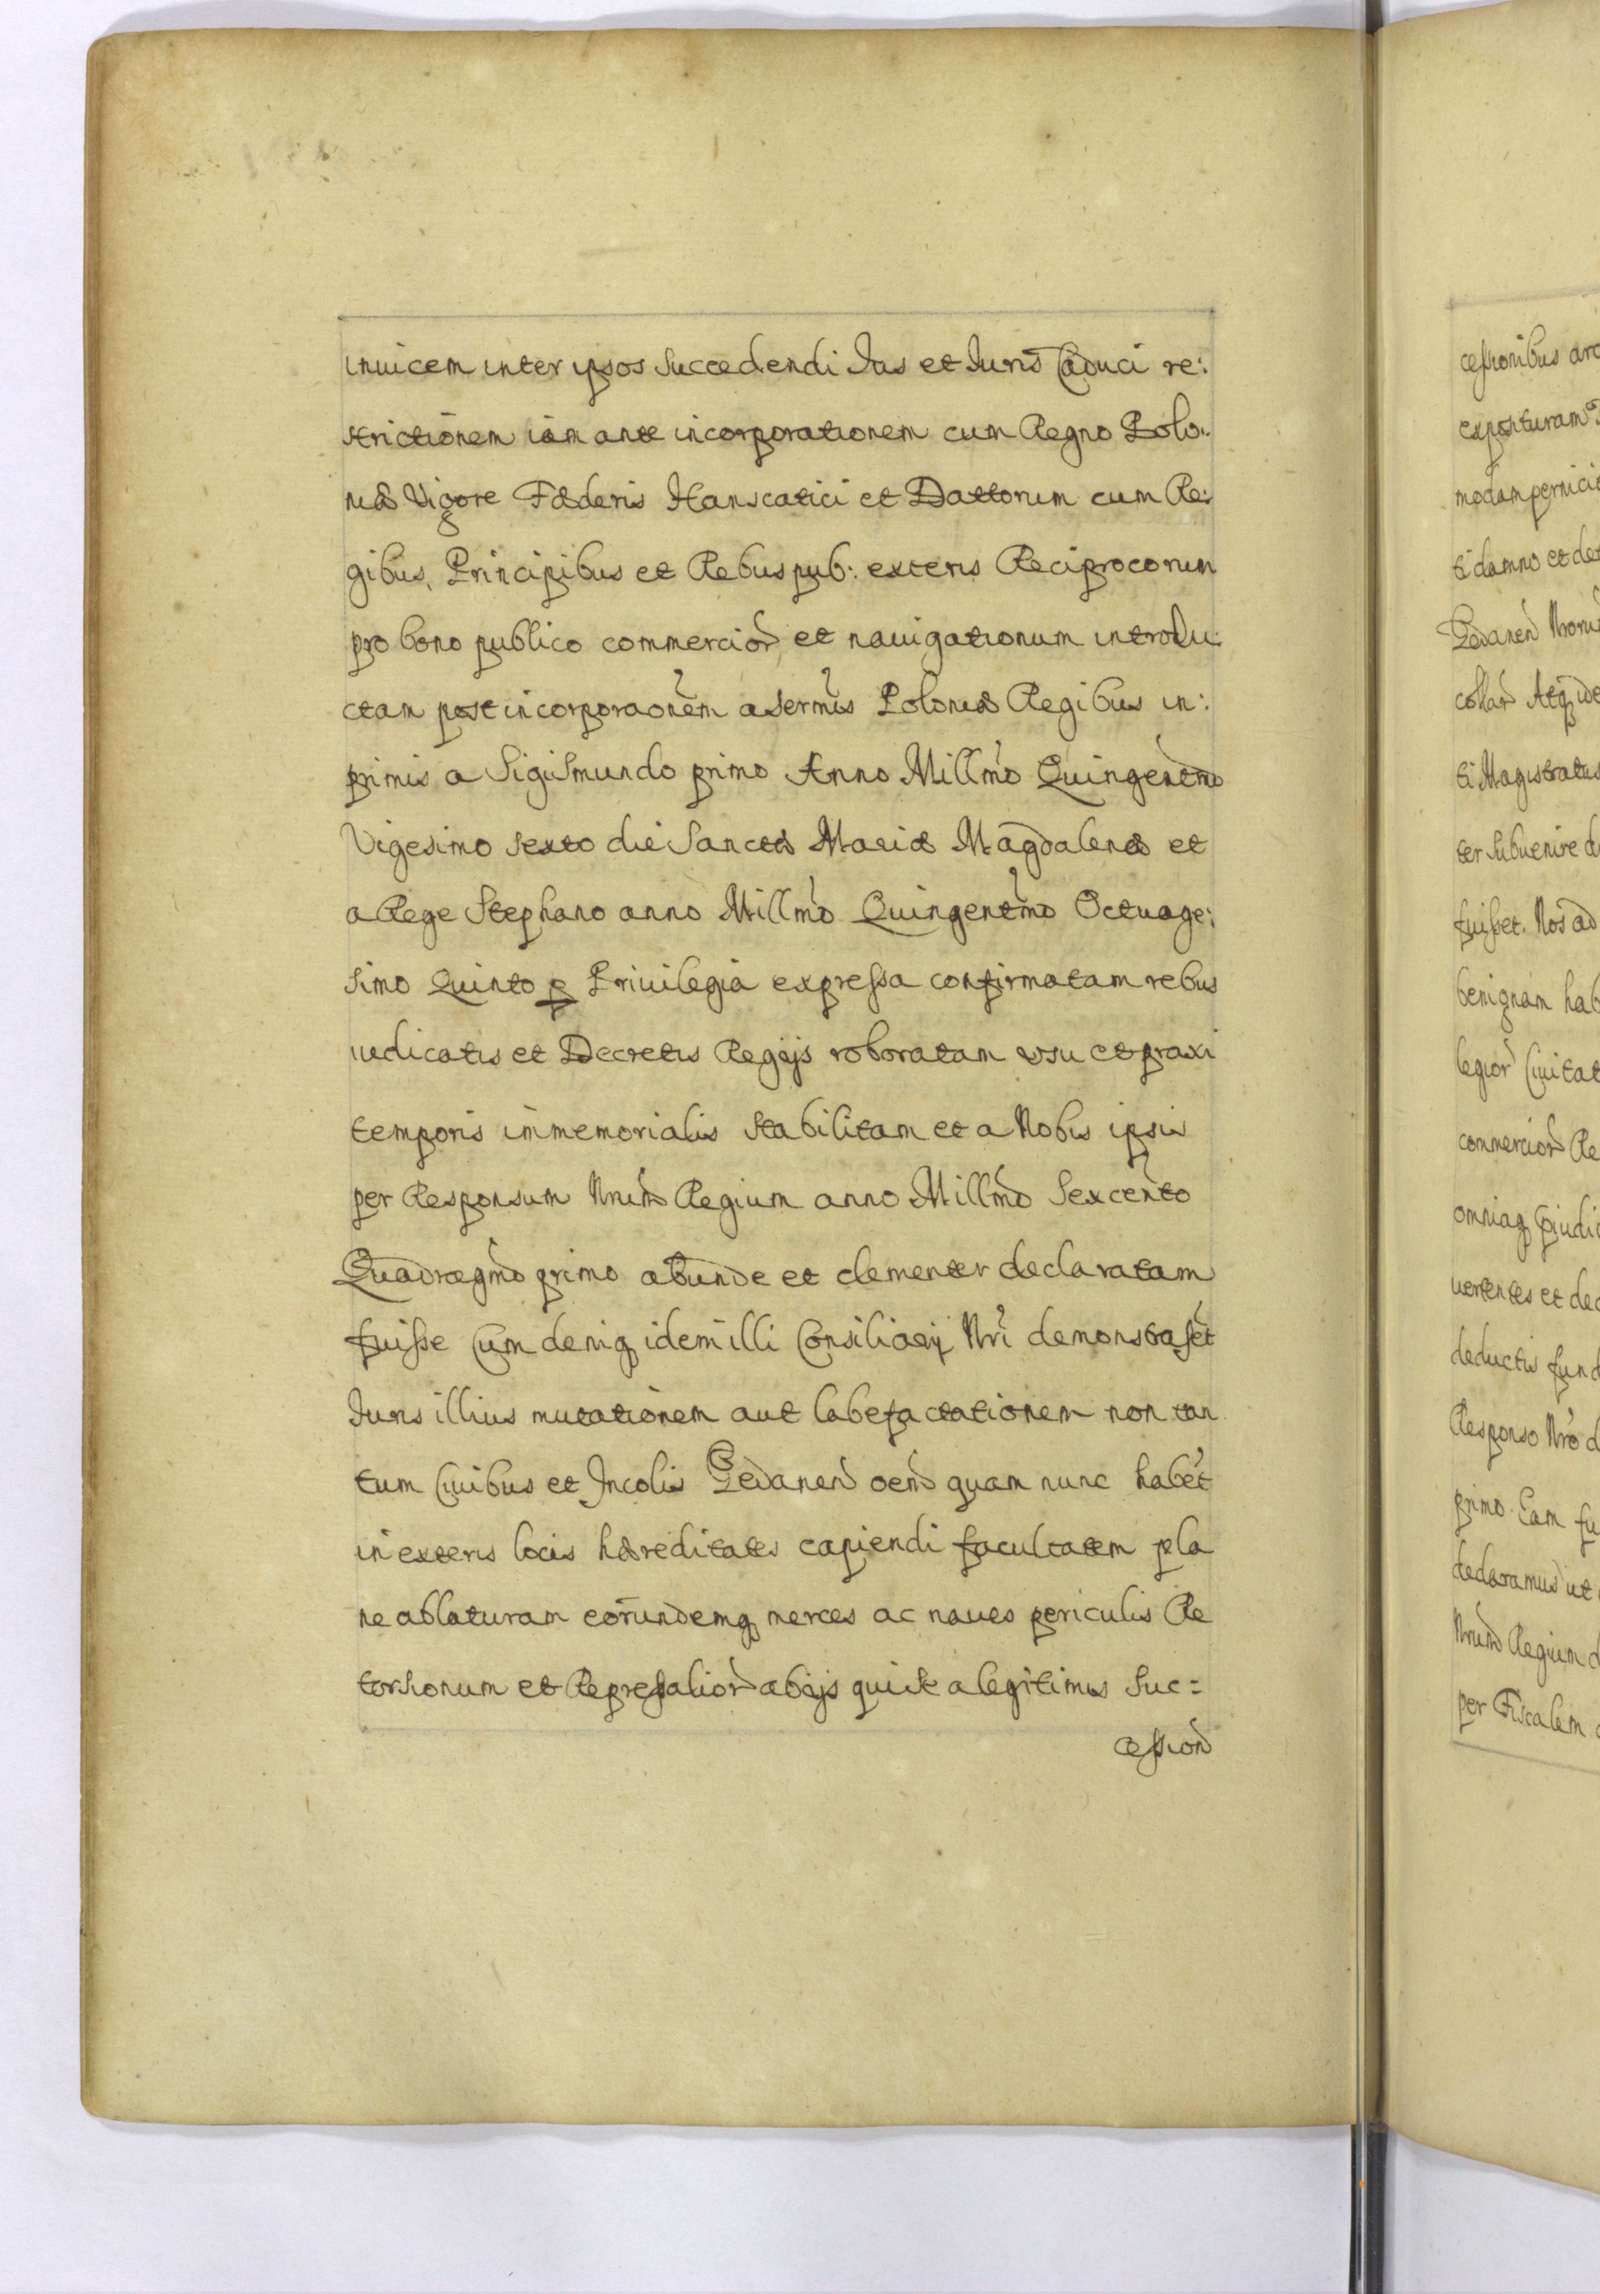 inuicem inter ipsos Succedendi Jus et Juris Caduci re:
strictionem iam ante incorporationem cum Regno Polo:
niæ Vigore Fæderis Hanseatici et Dattorum cum Re:
gibus, Principibus et Rebuspub: exteris Reciprocorum
pro bono publico commercior et nauigationum introdu:
ctam post incorporaonem a Sermis Poloniæ Regibus in:
primis a Sigismundo primo Anno Millmo Quingentmo
Vigesimo Sexto die Sanctæ Mariæ Magdalenæ et
a Rege Stephano anno Millmo Quingentmo Octuage:
simo Quinto p Priuilegia expressa confirmatam rebus
iudicatis et Decretis Regijs roboratam vsu et praxi
temporis immemorialis Stabilitam et a Nobis ipsis
per Responsum Nrum Regium anno Millmo Sexcento
Quadragmo primo abunde et clementer declaratam
fuisse Cum deniq idem illi Consiliarij Nri demonstrasset
Juris illius mutationem aut labefactationem non tan
tum Ciuibus et Incolis Gedanen oem quam nunc habet
in exteris locis hæreditates capiendi facultatem pla
ne ablaturam eorundemq merces ac naues periculis Re
torsionum et Represalior abijs qui se a legitimis Suc=
cession
cessionibus arc
exposituram
modam pernicio
ti damno et de
Gedanen Nrorum
collar Atq ide
ti Magistratus
ter Subuenire d
fuisset. Nos ad
benignam hab
legior Ciuitat
commercior Re
omniaq piudi
uertentes et dec
deductis fund
Responso Nro d
primo. Eam fu
declaramus ut
Nrum Regium d
per Fiscalem